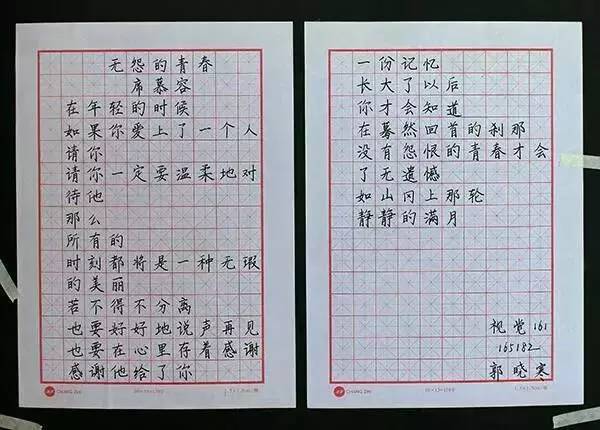 无怨的青春
席慕容
在年轻的时候
如果你爱上了一个人
请你
请你一定要温柔地对
待他
那么
所有的
时刻都将是一种无瑕
的美丽
若不得不分离
也要好好地说声再见
也要在心里存着感谢
感谢他给了你
一份记忆
长大了以后
你才会知道
在蓦然回首的刹那
没有怨恨的青春才会
了无遗憾
如山冈上那轮
静静的满月
视觉161
165182
郭晓寒